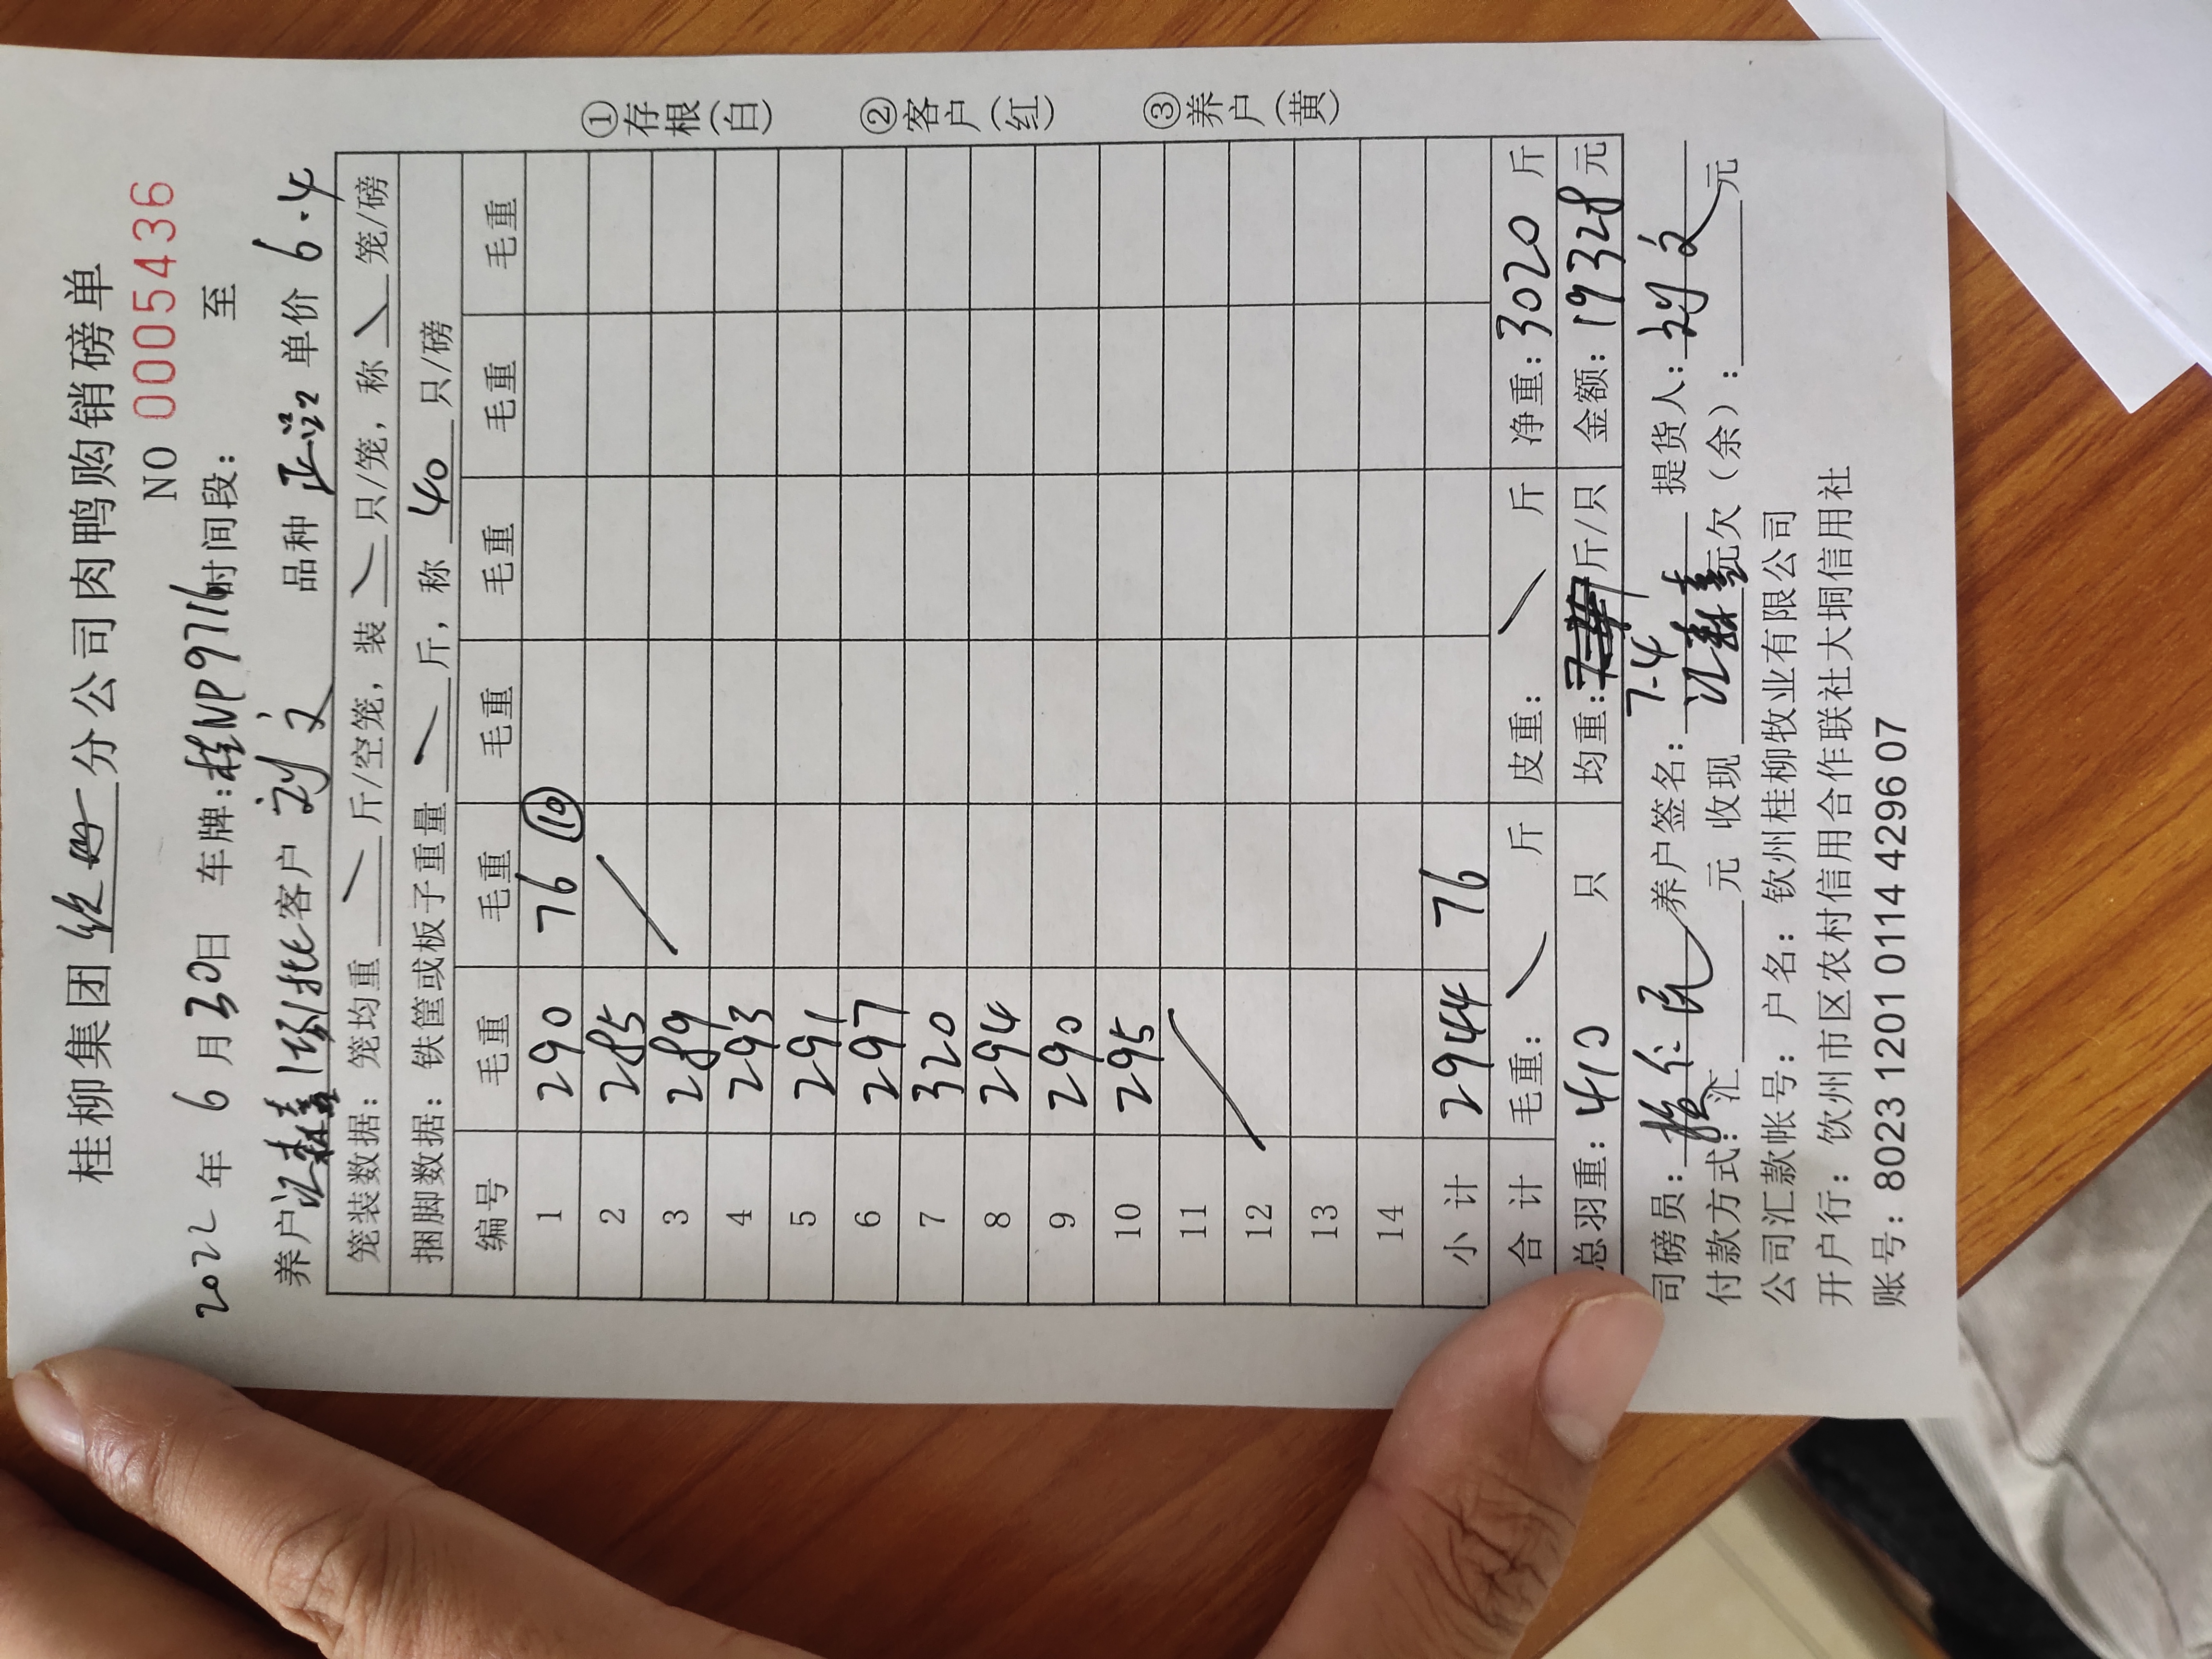 桂柳集团 分公司肉鸭购销磅单
NO 0005436
2022 年 6 月 30日 车牌:桂NP9716 时间段: 至
养户 汇森鑫 1场1批 客户 刘文 品种 正品 单价 6.4
笼装数据: 笼均重 \ 斤/空笼, 装 \ 只/笼, 称 \ 笼/磅
捆脚数据: 铁筐或板子重量 \ 斤, 称 40 只/磅
编号 毛重 毛重 毛重 毛重 毛重 毛重
1 290 76 ⑩
2 285
3 289
4 293
5 291
6 297
7 320
8 294
9 290
10 295
11
12
13
14
小计 2944 76
合计 毛重: \ 斤 皮重: \ 斤 净重: 3020 斤
总羽重: 410 只 均重: 7.4 斤/只 金额: 19328 元
司磅员: 养户签名: 汇森鑫 提货人: 刘文
付款方式: 汇 元 收现 元欠(余): 元
公司汇款帐号: 户名: 钦州桂柳牧业有限公司
开户行: 饮州市区农村信用合作联社大垌信用社
账号: 8023 1201 0114 4296 07
①存根(白)
②客户(红)
③养户(黄)